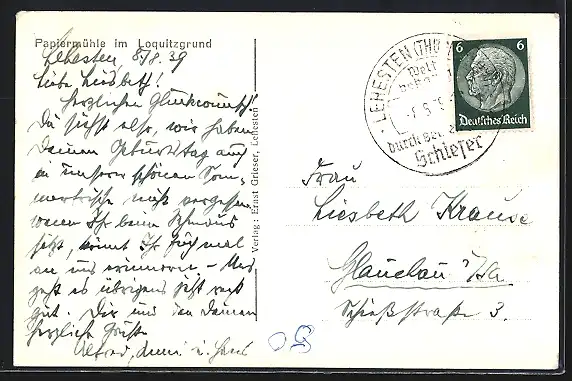 Papiermühle im Loquitzgrund
Lehesten, 8/8.39
Liebe Liesbeth!
Herzlichen Glückwunsch!
Du siehst also, wir haben
Deinen Geburtstag auch
in unserer schönen Som-
merfrische nicht vergessen.
wenn Ihr beim Schmaus
sitzt, könnt Ihr Euch mal
an uns erinnern. - Uns
geht es übrigens jetzt recht
gut. Dir und den Deinen
herzliche Grüße
Alfred, Anni u. Hans
Verlag: Ernst Grieser, Lehesten
LEHESTEN (THÜ
Welt
durch den
Schiefer
6 6
Deutsches Reich
Frau
Liesbeth Krause
Glauchau i/Sa
Schießstraße 3.